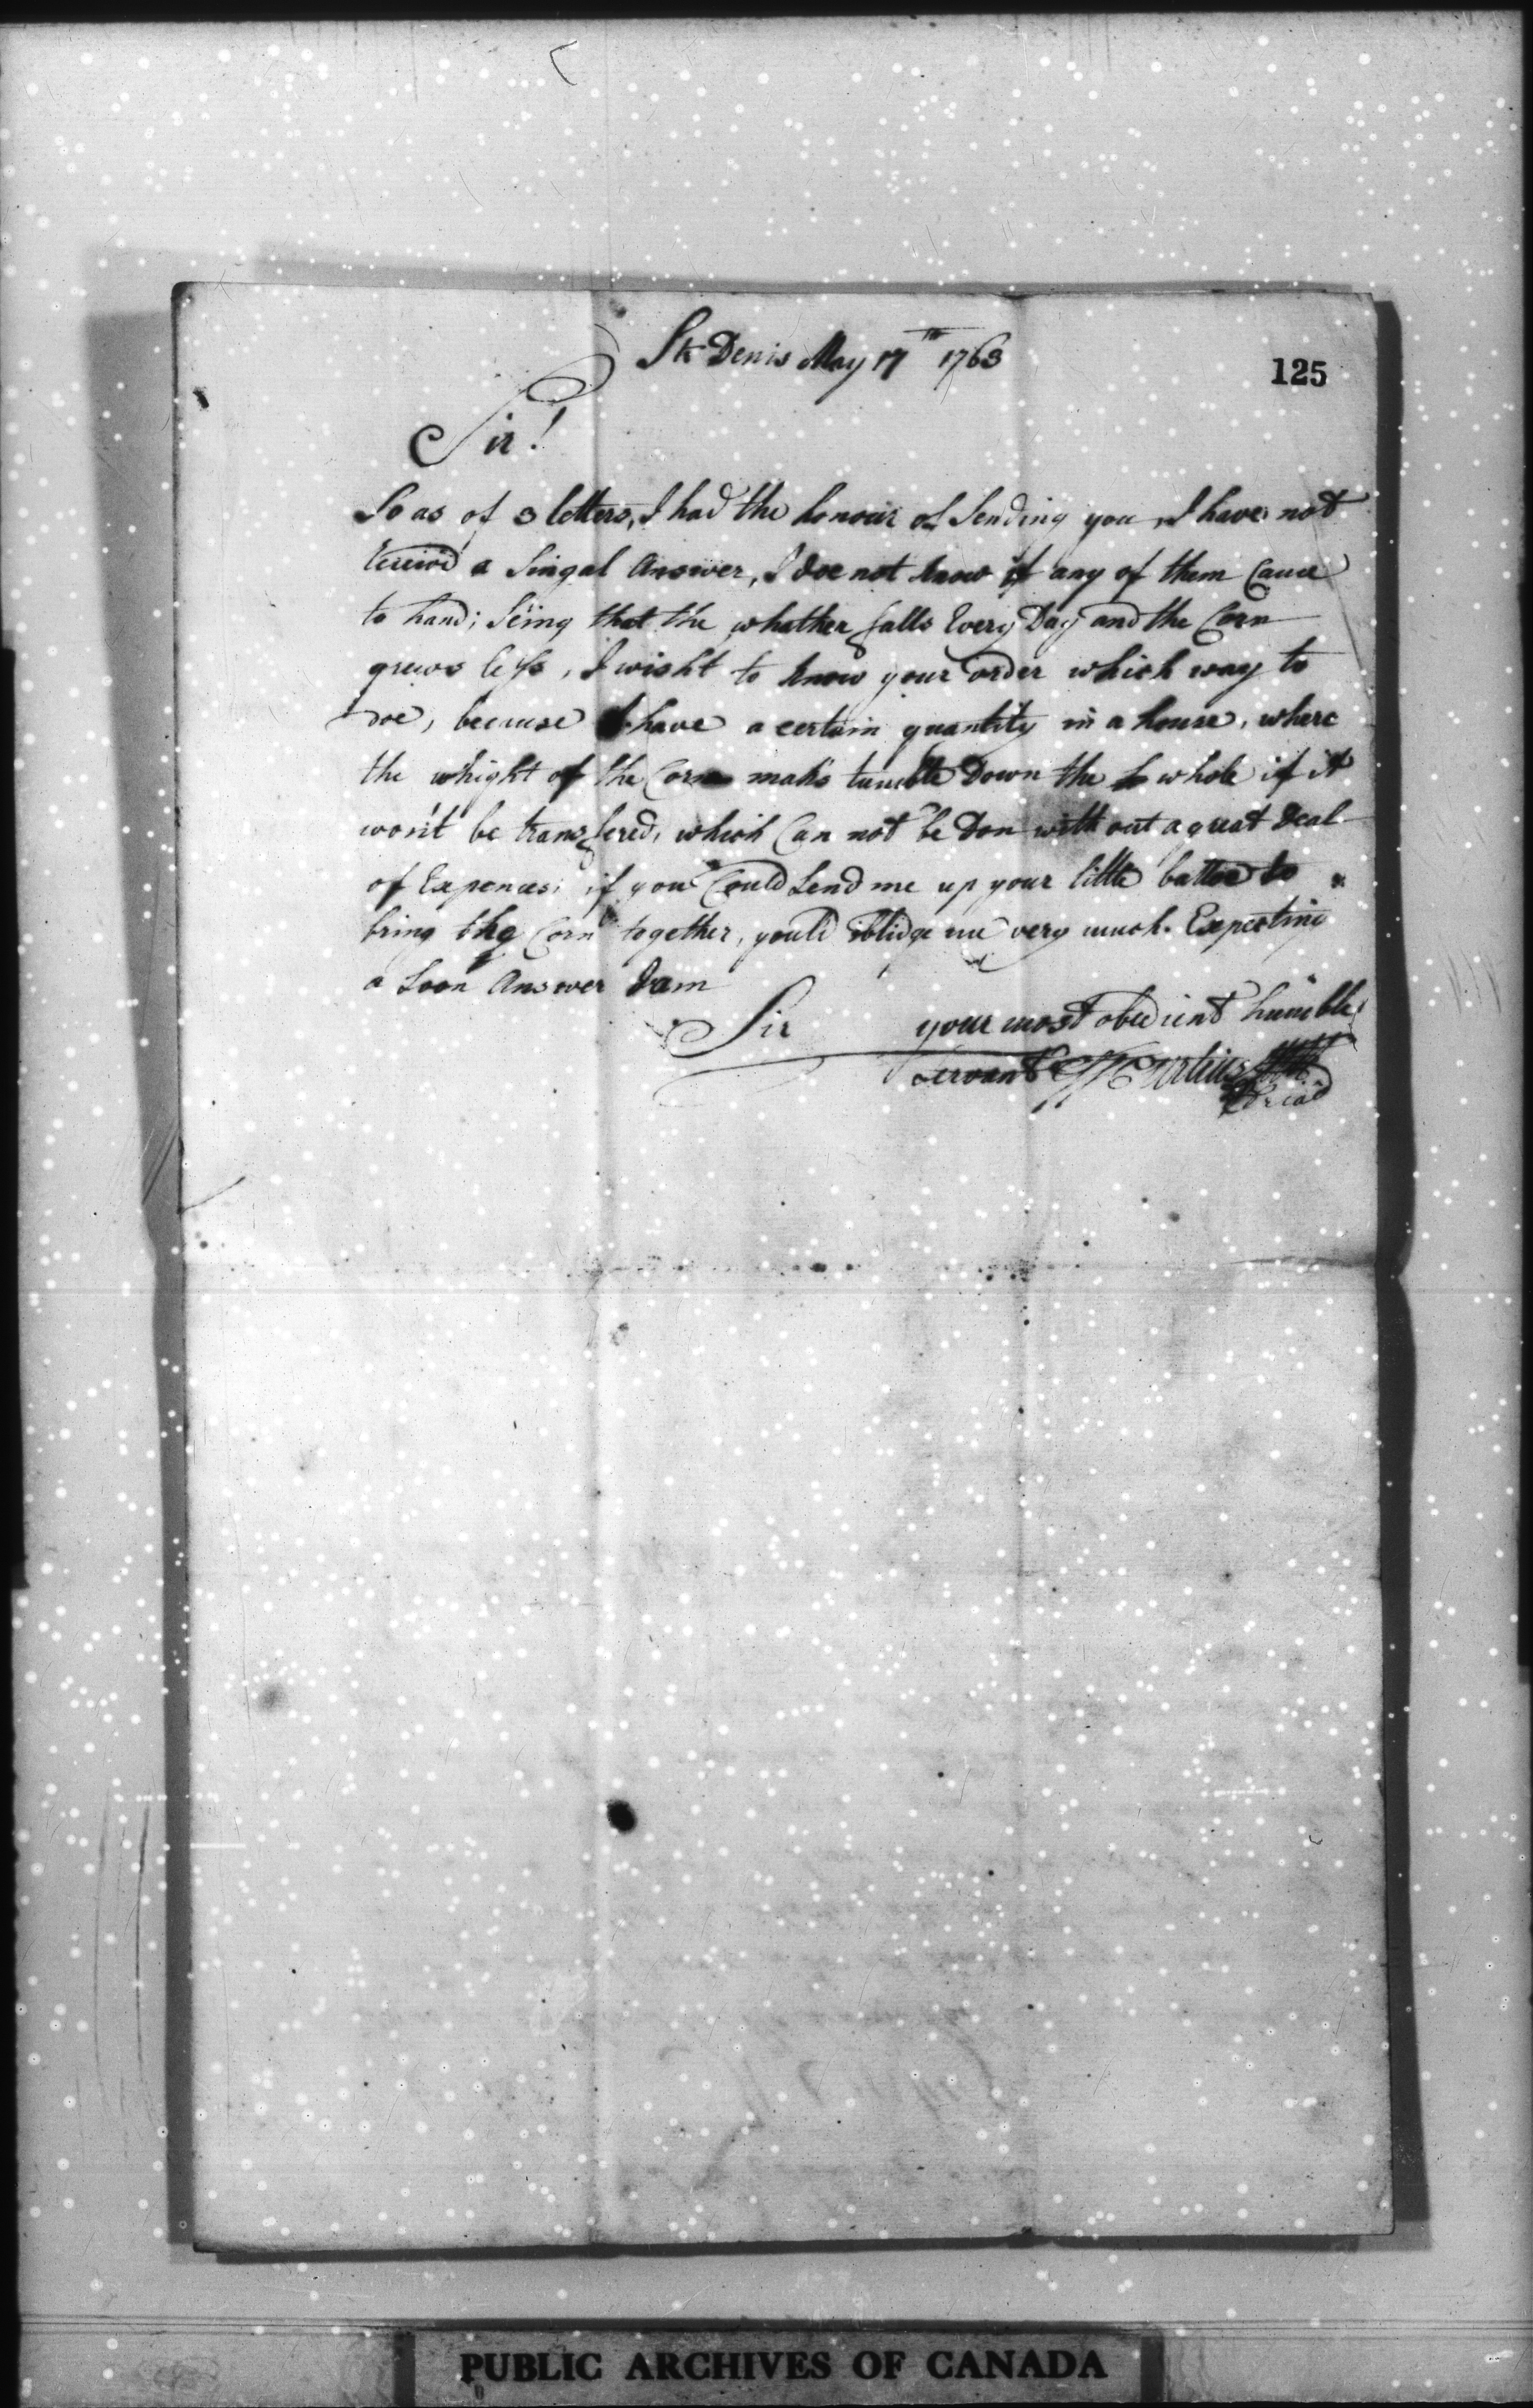 St Denis May 17th 1763
125
Sir!
So as of 3 letters, I had the honour of Sending you, I have not
receiv'd a Singal Answer, I doe not know if any of them Came
to hand; Seing that the whather falls Every Day and the Corn
grews less, I wisht to know your order which way to
doe, because I have a certain quantity in a house, where
the whight of the Corn maks tumble Down the whole if it
won't be transfered, which Can not be Don with out a great Deal
of Expences; if you Could Send me up your little battoe to
bring the Corn together, you'ld iblidge me very much. Expecting
a Soon Answer I am
Sir your most obedient humble
servant Curtius
PUBLIC ARCHIVES OF CANADA